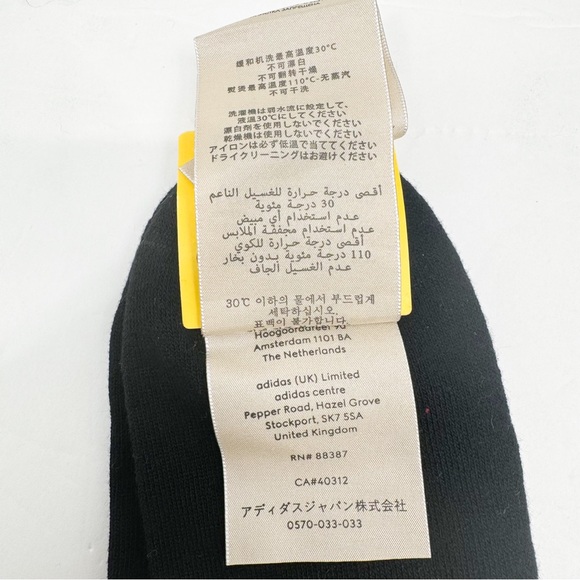 缓和机洗最高温度30°C
不可漂白
不可翻转干燥
熨烫最高温度110°C-无蒸汽
不可干洗
洗濯機は弱水流に設定して、
液温30℃にしてください
漂白剤を使用しないでください
乾燥機は使用しないでください
アイロンは必ず低温で当ててください
ドライクリーニングはお避けください
أقصى درجة حرارة للغسيل الناعم
30 درجة مئوية
عدم استخدام أي مبيض
عدم استخدام مجففة الملابس
أقصى درجة حرارة للكوي
110 درجة مئوية بدون بخار
عدم الغسيل الجاف
30℃ 이하의 물에서 부드럽게
세탁하십시오.
표백이 불가합니다.
Amsterdam 1101 BA
The Netherlands
adidas (UK) Limited
adidas centre
Pepper Road, Hazel Grove
Stockport, SK7 5SA
United Kingdom
RN# 88387
CA#40312
アディダスジャパン株式会社
0570-033-033